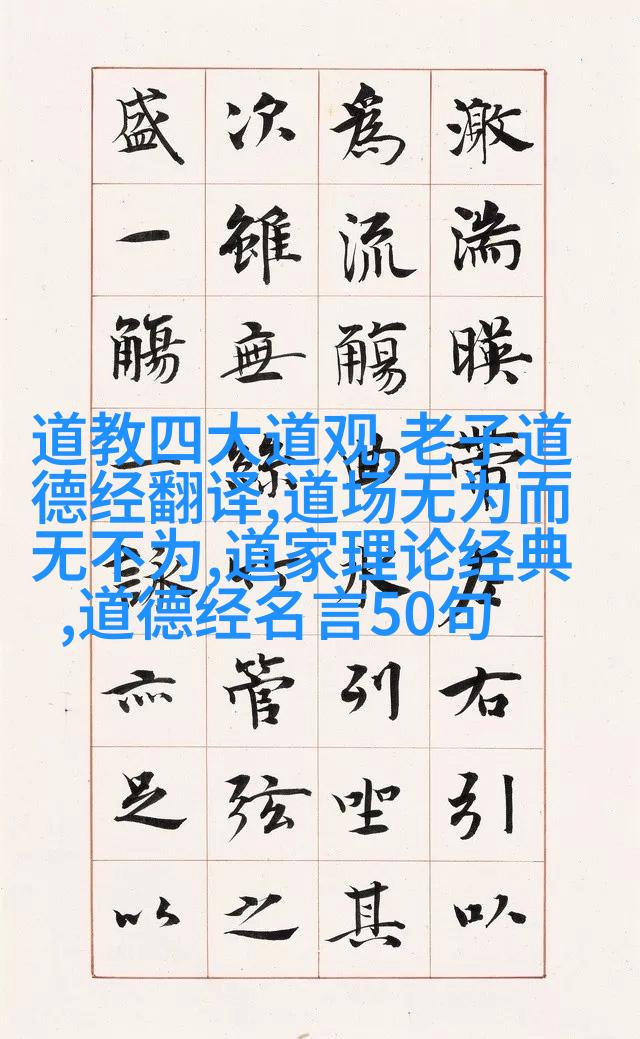 激湍暎帶左右引以
為流觴曲水列坐其
次雖無絲竹管弦之
盛一觴一詠亦足以
道教四大道观,老子道
德经翻译,道场无为而
无不为,道家理论经典
,道德经名言50句